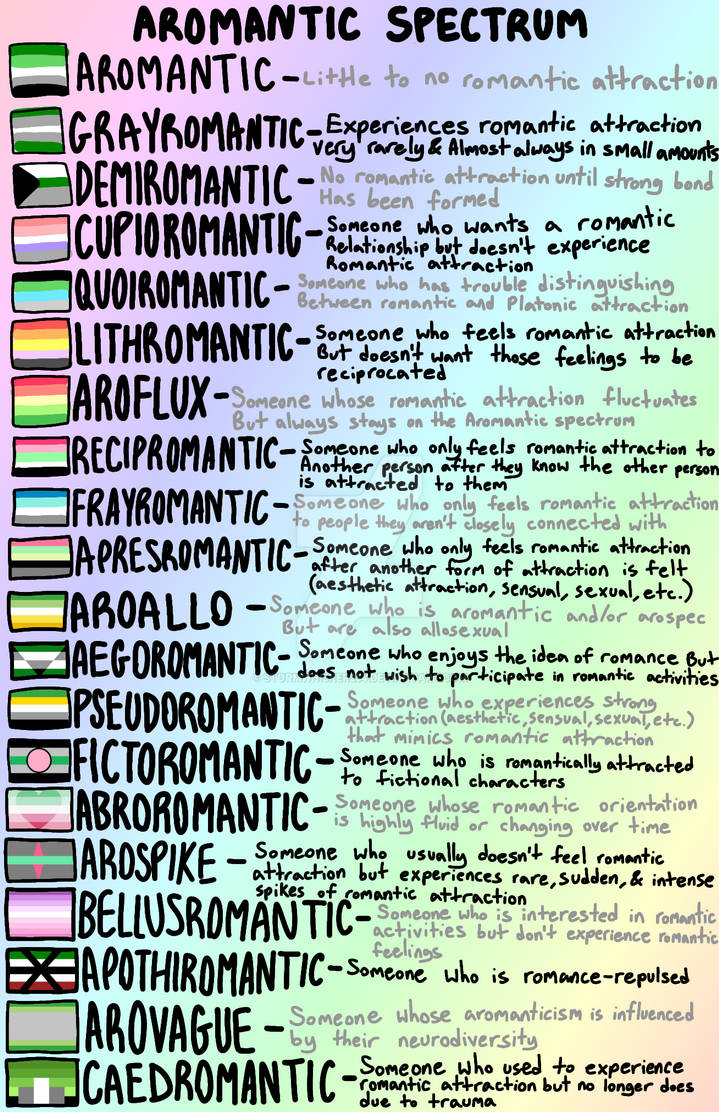 AROMANTIC SPECTRUM
AROMANTIC - Little to no romantic attraction
GRAYROMANTIC - Experiences romantic attraction
very rarely & Almost always in small amounts
DEMIROMANTIC - No romantic attraction until strong bond
Has been formed
CUPIOROMANTIC - Someone who wants a romantic
Relationship but doesn't experience
Romantic attraction
QUOIROMANTIC - Someone who has trouble distinguishing
Between romantic and Platonic attraction
LITHROMANTIC - Someone who feels romantic attraction
But doesn't want those feelings to be
reciprocated
AROFLUX - Someone whose romantic attraction fluctuates
But always stays on the Aromantic spectrum
RECIPROMANTIC - Someone who only feels romantic attraction to
Another person after they know the other person
is attracted to them
FRAYROMANTIC - Someone who only feels romantic attraction
to people they aren't closely connected with
APRESROMANTIC - Someone who only feels romantic attraction
after another form of attraction is felt
(aesthetic attraction, sensual, sexual, etc.)
AROALLO - Someone who is aromantic and/or arospec
But are also allosexual
AEGOROMANTIC - Someone who enjoys the idea of romance But
does not wish to participate in romantic activities
PSEUDOROMANTIC - Someone who experiences strong
attraction (aesthetic, sensual, sexual, etc.)
that mimics romantic attraction
FICTOROMANTIC - Someone who is romantically attracted
to fictional characters
ABROROMANTIC - Someone whose romantic orientation
is highly fluid or changing over time
AROSPIKE - Someone who usually doesn't feel romantic
attraction but experiences rare, sudden, & intense
spikes of romantic attraction
BELLUSROMANTIC - Someone who is interested in romantic
activities but don't experience romantic
feelings
APOTHIROMANTIC - Someone who is romance-repulsed
AROVAGUE - Someone whose aromanticism is influenced
by their neurodiversity
CAEDROMANTIC - Someone who used to experience
romantic attraction but no longer does
due to trauma